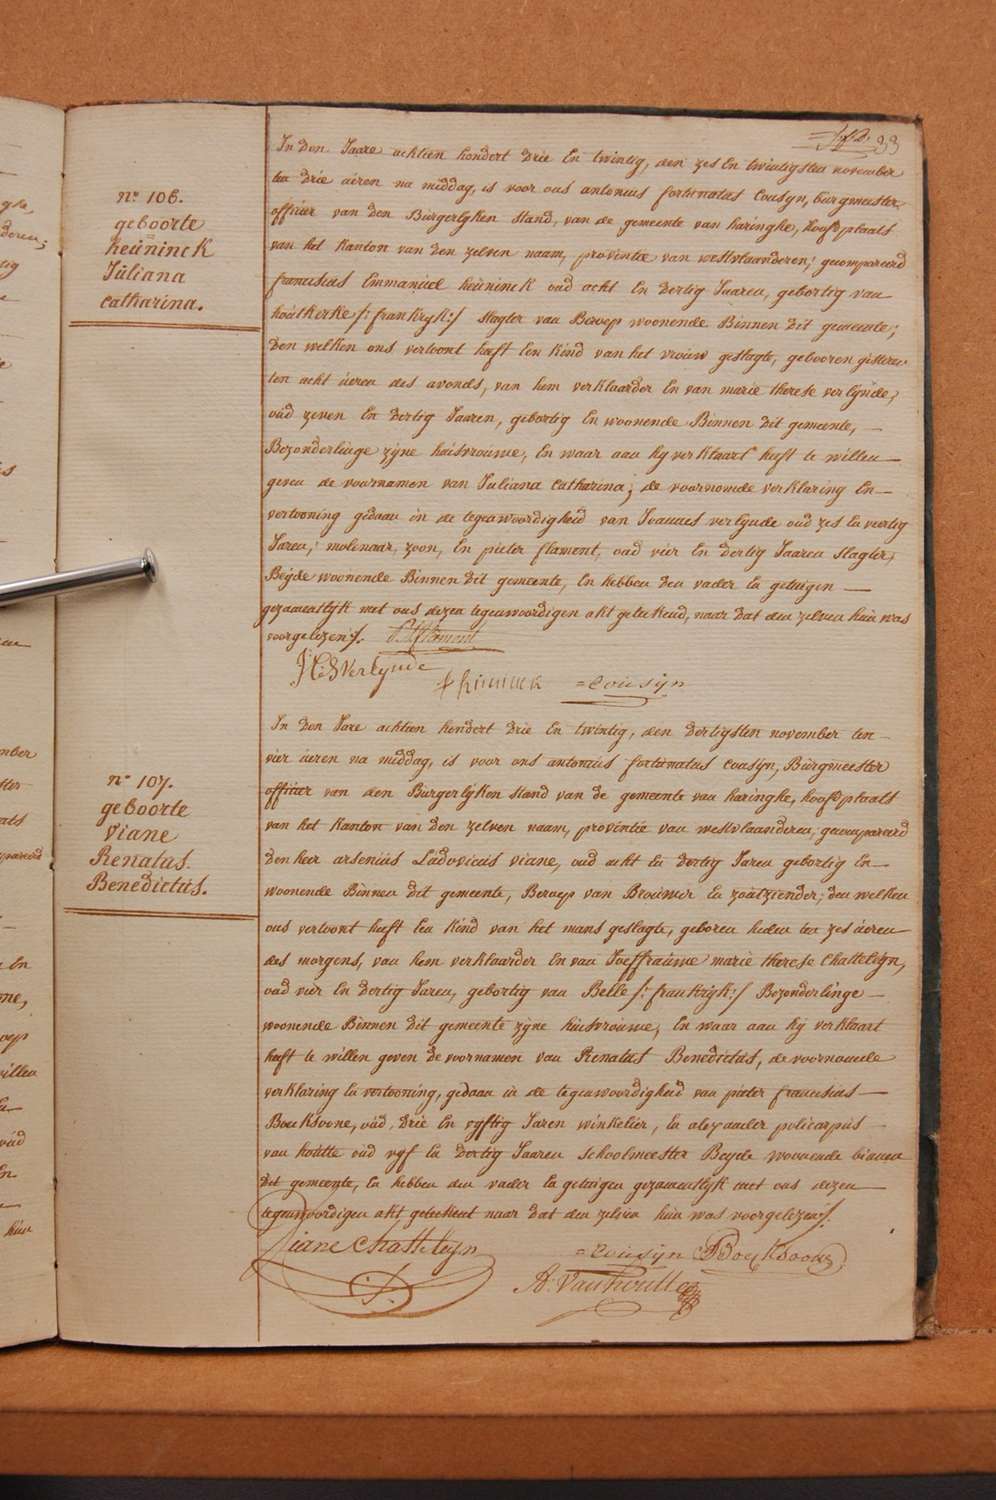 33
nº 106.
geboorte
keüninck
Jüliana
catharina.
In den Jaare achtien hondert drie En twintig, den zes En twintigsten november
ten drie üeren na middag, is voor ons antonius fortunatus Cousyn, burgmeester,
officier van den Bürgerlyken stand, van de gemeente van haringhe, hoofdplaats
van het Kanton van den zelven naam, provintie van westvlaanderen, gecompareerd
francisius Emmanüel keüninck oud acht En dertig Jaaren, gebortig van
houtkerke /: frankryk :/ slagter van Beroep woonende Binnen dit gemeente;
Den welken ons vertoont heeft Een kind van het vrouw geslagte, gebooren gisteren
ten acht üeren des avonds, van hem verklaarder En van marie therese verlynde,
oüd zeven En dertig Jaaren, gebortig En woonende Binnen dit gemeente, —
Bezonderlinge zyne huisvrouwe, En waar aan hy verklaart heeft te willen —
geven de voornamen van Juliana Catharina; de voornomde verklaring En —
vertooning gedaan in de tegenwoordigheid van Joannes verlynde oud zes En viertig
Jaren, molenaar, zoon, En pieter flament, oud vier En dertig Jaaren slagter,
Beyde woonende Binnen dit gemeente, En hebben den vader En getuigen —
gezamentlyk met ons dezen tegenwoordigen akt geteekend, naar dat den zelven hun was
voorgelezen /. P. flament
J C verlynde
f kininck = Cousyn
nº 107.
geboorte
viane
Renatus.
Benedictus.
In den Jare achtien hondert drie En twintig, den dertigsten november ten —
vier üeren na middag, is voor ons antonius fortunatus Cousyn, Bürgmeester
officier van den Burgerlyken stand van de gemeente van haringhe, hoofdplaats
van het Kanton van den zelven naam, provintie van westvlaanderen, gecompareerd
den heer arsenius Lüdovicus viane, oud acht En dertig Jaren gebortig En —
woonende Binnen dit gemeente, Beroep van Brouwer En zoutziender; den welken
ons vertoont heeft Een kind van het mans geslagte, geboren heden ten zes üeren
des morgens, van hem verklaarder En van Joeffrauwe marie therese Chatteleyn,
oud vier En dertig Jaren, gebortig van Belle /: frankryk :/ Bezonderlinge —
woonende Binnen dit gemeente zyne huisvrouwe, En waar aan hy verklaart
heeft te willen geven de voornamen van Renatus Benedictus, de voornomde
verklaring En vertooning, gedaan in de tegenwoordigheid van pieter francisius —
Boucksoone, oüd, drie En vyftig Jaren winkelier, En alexander policarpus —
van houtte oud vyf En dertig Jaaren schoolmeester Beyde woonende binnen
dit gemeente, En hebben den vader En getuigen gezamentlyk met ons dezen
tegenwoordigen akt geteekent naar dat den zelven hun was voorgelezen /.
Viane Chatteleyn = Cousyn Boucksoone
A: Vanhoutte